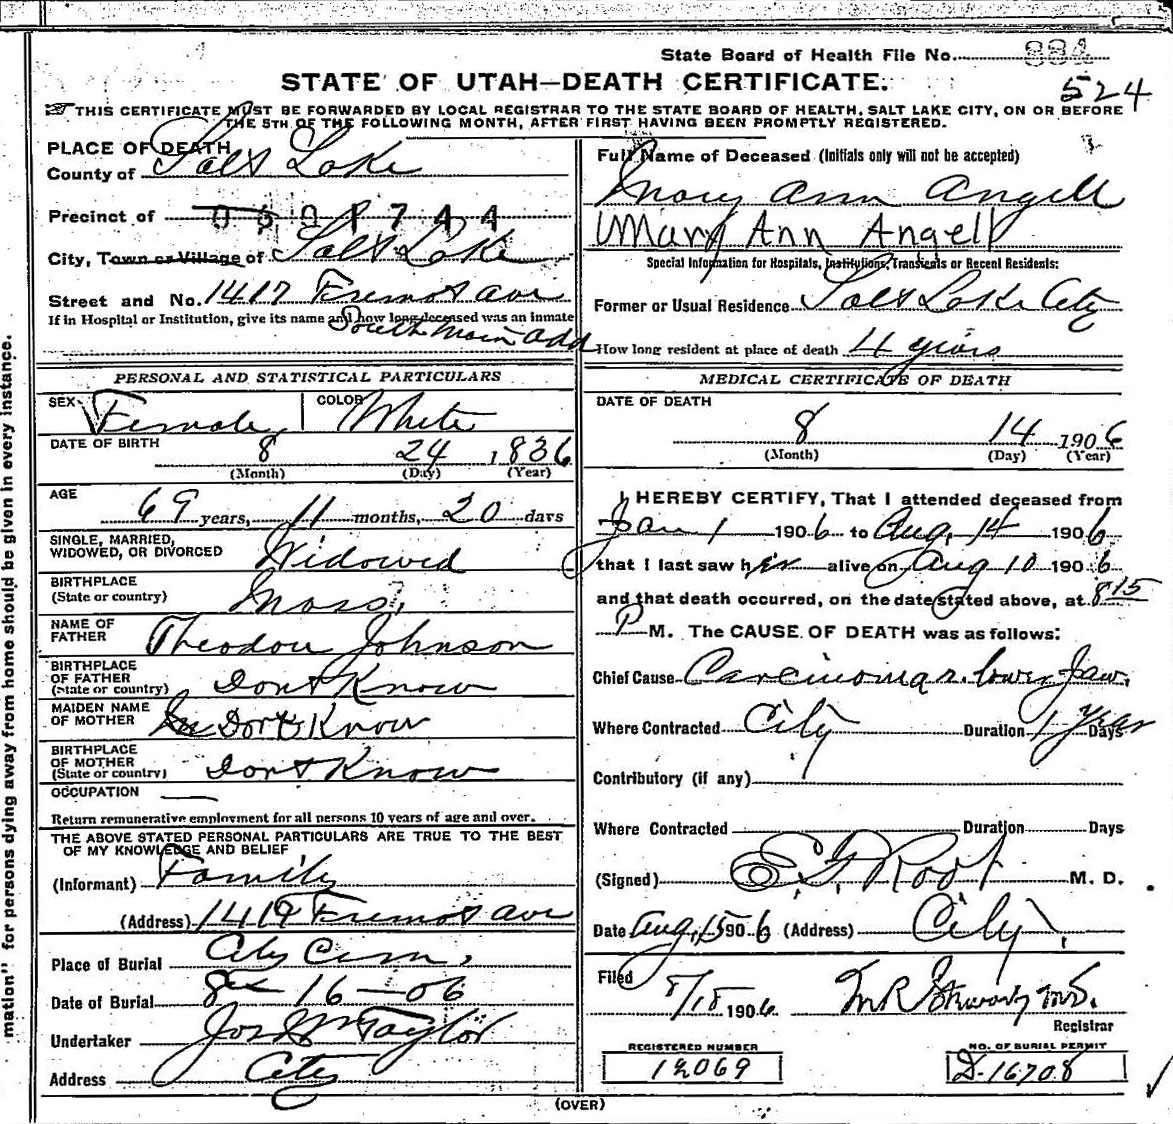 State Board of Health File No. 884
STATE OF UTAH—DEATH CERTIFICATE.
524
THIS CERTIFICATE MUST BE FORWARDED BY LOCAL REGISTRAR TO THE STATE BOARD OF HEALTH, SALT LAKE CITY, ON OR BEFORE
THE 5TH OF THE FOLLOWING MONTH, AFTER FIRST HAVING BEEN PROMPTLY REGISTERED.
PLACE OF DEATH
County of Salt Lake
Precinct of
City, Town or Village of Salt Lake
Street and No. 1417 Fremont ave
If in Hospital or Institution, give its name and how long deceased was an inmate
South Main add
Full Name of Deceased (Initials only will not be accepted)
Mary Ann Angell
Mary Ann Angell
Special Information for Hospitals, Institutions, Transients or Recent Residents:
Former or Usual Residence Salt Lake City
How long resident at place of death 4 years
PERSONAL AND STATISTICAL PARTICULARS
SEX Female COLOR White
DATE OF BIRTH
8 24 1836
(Month) (Day) (Year)
AGE
69 years, 11 months, 20 days
SINGLE, MARRIED,
WIDOWED, OR DIVORCED Widowed
BIRTHPLACE
(State or country) Mass,
NAME OF
FATHER Theodore Johnson
BIRTHPLACE
OF FATHER
(State or country) Dont Know
MAIDEN NAME
OF MOTHER Dont Know
BIRTHPLACE
OF MOTHER
(State or country) Dont Know
OCCUPATION —
Return remunerative employment for all persons 10 years of age and over.
THE ABOVE STATED PERSONAL PARTICULARS ARE TRUE TO THE BEST
OF MY KNOWLEDGE AND BELIEF
(Informant) Family
(Address) 1419 Fremont ave
Place of Burial City Cem,
Date of Burial 8— 16 — 06
Undertaker Jos Wm Taylor
Address City
MEDICAL CERTIFICATE OF DEATH
DATE OF DEATH
8 14 1906
(Month) (Day) (Year)
I HEREBY CERTIFY, That I attended deceased from
Jan 1 1906 to Aug. 14 1906
that I last saw her alive on Aug 10 1906
and that death occurred, on the date stated above, at 8 15
P M. The CAUSE OF DEATH was as follows:
Chief Cause Carcinoma r. lower Jaw.
Where Contracted City Duration 1 Year Days
Contributory (if any)
Where Contracted Duration Days
(Signed) E. F. Root M. D.
Date Aug, 15 1906 (Address) City.
Filed 8/15 1906
Registrar
REGISTERED NUMBER
12069
NO. OF BURIAL PERMIT
D-16708
(OVER)
mation" for persons dying away from home should be given in every instance.